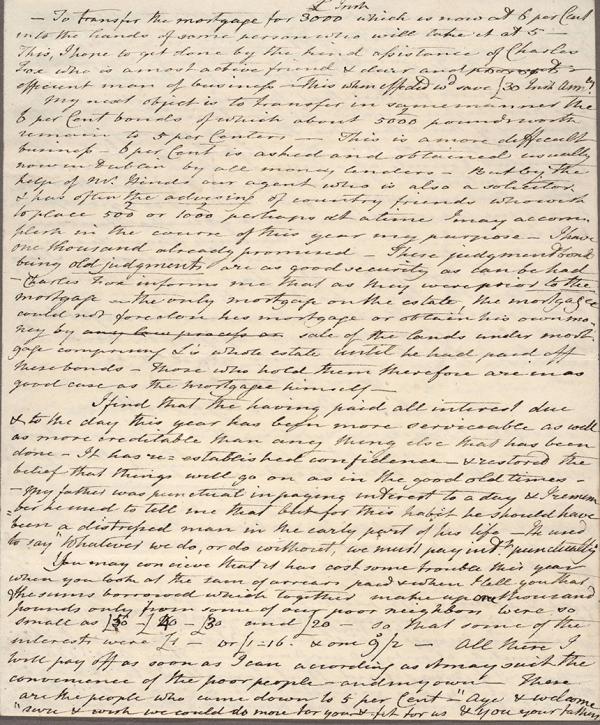 £ Irish
— To transfer the mortgage for 3000 which is now at 6 per Cent
into the hands of some person who will take it at 5 —
This, I hope to get done by the kind assistance of Charles
Fox who is a most active friend & dear and
efficient man of business — this when effected wd save £30 Irish
My next object is to transfer in same manner the
6 per Cent bonds of which about 5000 pounds worth
remain to 5 per Centers — This is a more difficult
business — 6 per Cent is asked and obtained usually
now in Dublin by all money lenders — But by the
help of Mr. Hinds our agent who is also a solicitor
& has often the advising of country friends who wish
to place 500 or 1000 perhaps at a time I may accom
plish in the course of this year my purpose — I have
one thousand already promised — These judgment bonds
being old judgments are as good security as can be had
— Charles Fox informs me that as they were prior to the
mortgage — the only mortgage on the estate, the mortgagee
could not foreclose his mortgage or obtain his own mo
ney by any law process or sale of the lands under mort
gage comprising L's whole estate until he had paid off
these bonds — Those who hold them therefore are in as
good case as the mortgagee himself —
I find that the having paid all interest due
& to the day this year has been more serviceable as well
as more creditable than any thing else that has been
done — It has re=established confidence — & restored the
belief that things will go on as in the good old times —
— My father was punctual in paying interest to a day & I remem
ber he used to tell me that but for this habit he should have
been a distressed man in the early part of his life — He used
to say "Whatever we do, or do without, we must pay intst punctually"
You may concieve that it has cost some trouble this year
when you look at the sum of arrears paid & when I tell you that
the sums borrowed which together make up one thousand
pounds only from some of our poor neighbors were so
small as £50 — £40 — £30 and £20 — so that some of the
interests were £1 — or £1=16. & one 9/2 — All these I
will pay off as soon as I can according as it may suit the
convenience of the poor people — and my own — These
are the people who came down to 5 per Cent — "Aye & welcome
"sure & wish we could do more for you & fit for us & you your father